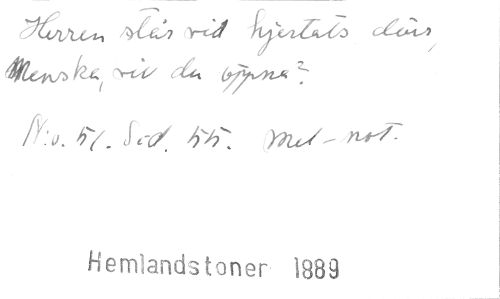 Herren står vid hjertats dörr,
Menska, vill du öppna?
N:o. 51. Sid. 55. Mel-not.
Hemlandstoner 1889